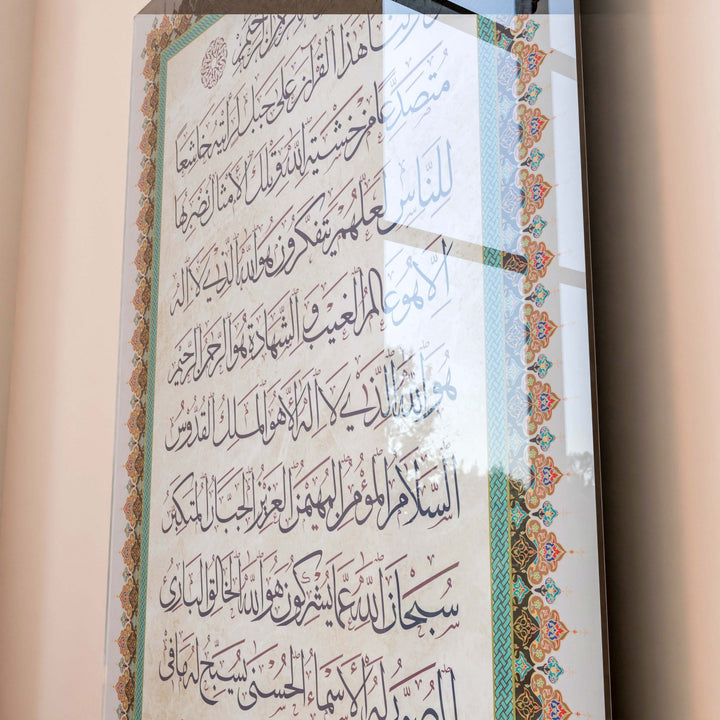 الرحمن الرحيم
هذا القرآن على جبل لرأيته خاشعا
متصدعا من خشية الله وتلك الأمثال نضربها
للناس لعلهم يتفكرون هو الله الذي لا اله
إلا هو عالم الغيب والشهادة هو الرحمن الرحيم
هو الله الذي لا اله إلا هو الملك القدوس
السلام المؤمن المهيمن العزيز الجبار المتكبر
سبحان الله عما يشركون هو الله الخالق البارئ
المصور له الأسماء الحسنى يسبح له ما في